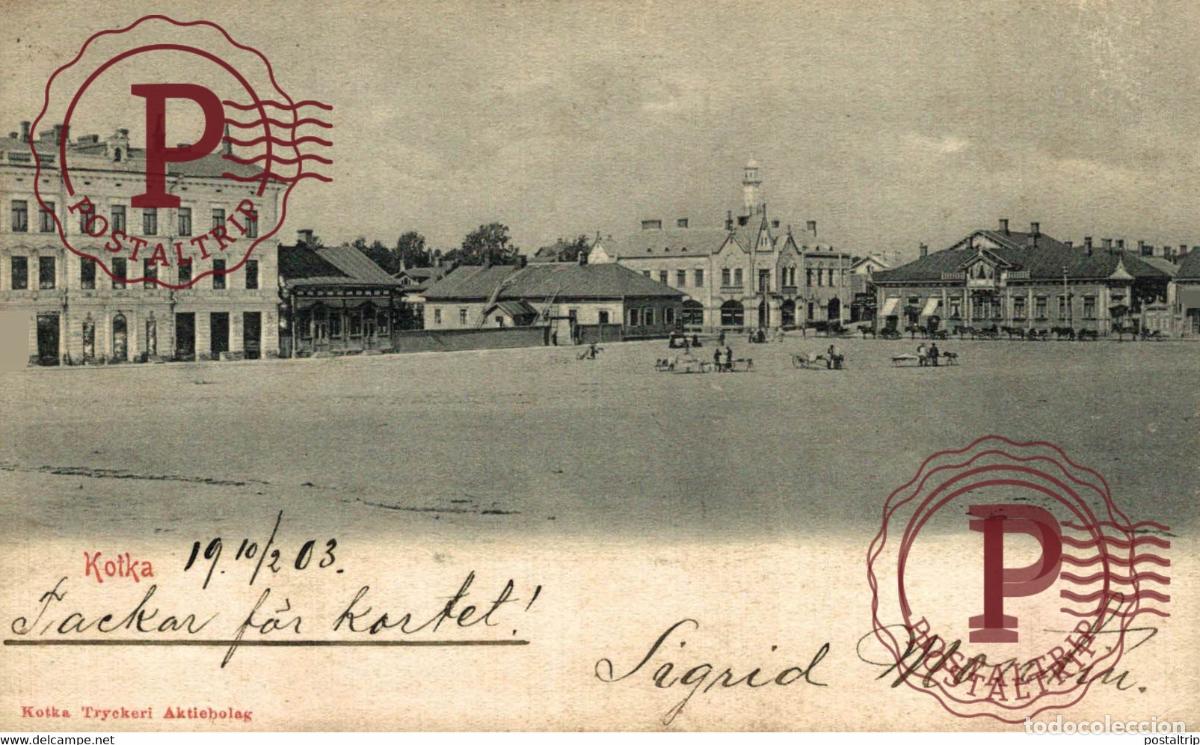 P
POSTALTRIP
Kotka
19 10/2 03.
Tackar för kortet!
Sigrid
P
POSTALTRIP
Kotka Tryckeri Aktiebolag
todocoleccion
www.delcampe.net
postaltrip